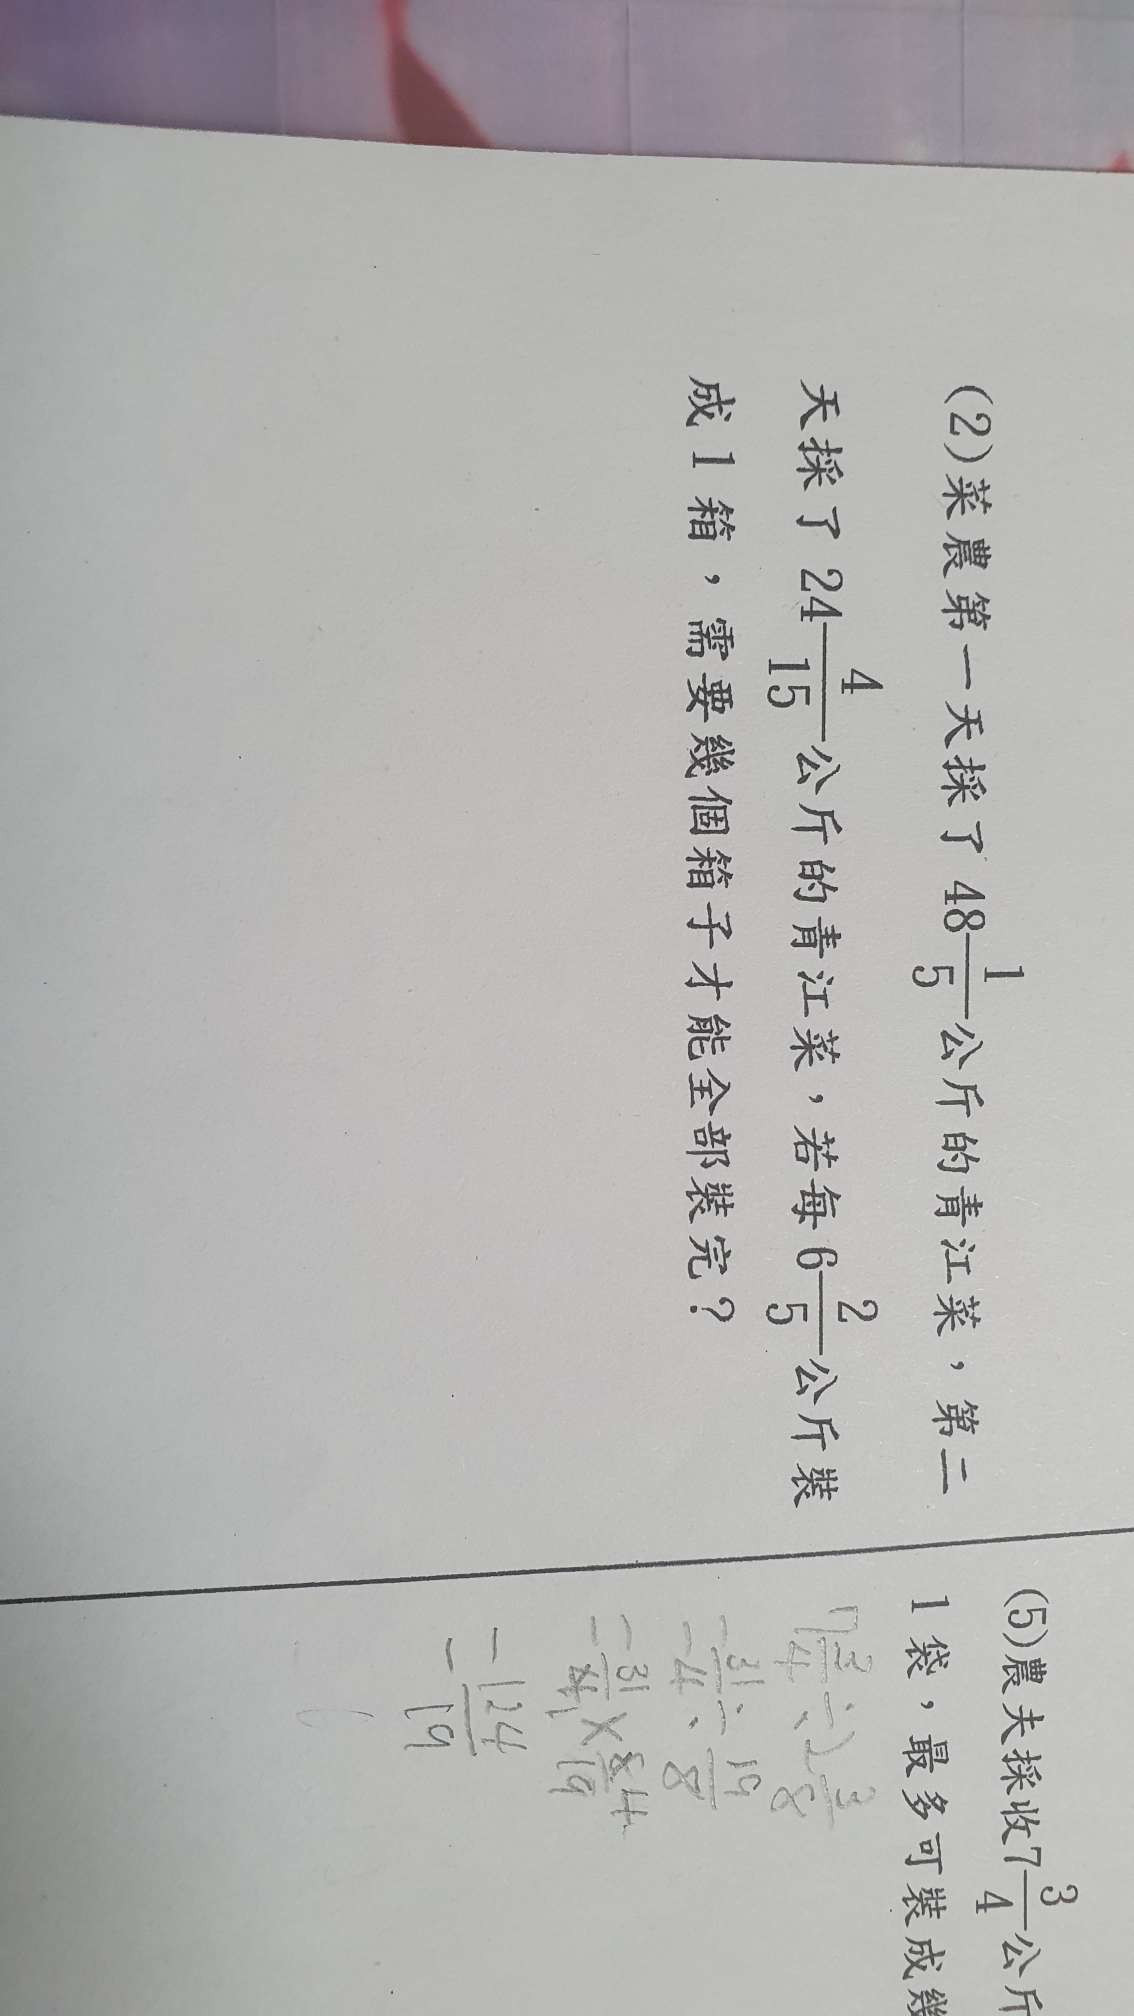 (2)菜農第一天採了48 1/5公斤的青江菜，第二
天採了24 4/15公斤的青江菜，若每6 2/5公斤裝
成1箱，需要幾個箱子才能全部裝完？
(5)農夫採收7 3/4公斤
1袋，最多可裝成幾
7 3/4 ÷ 2 3/8
= 31/4 ÷ 19/8
= 31/4 × 8/19
= 124/19
=